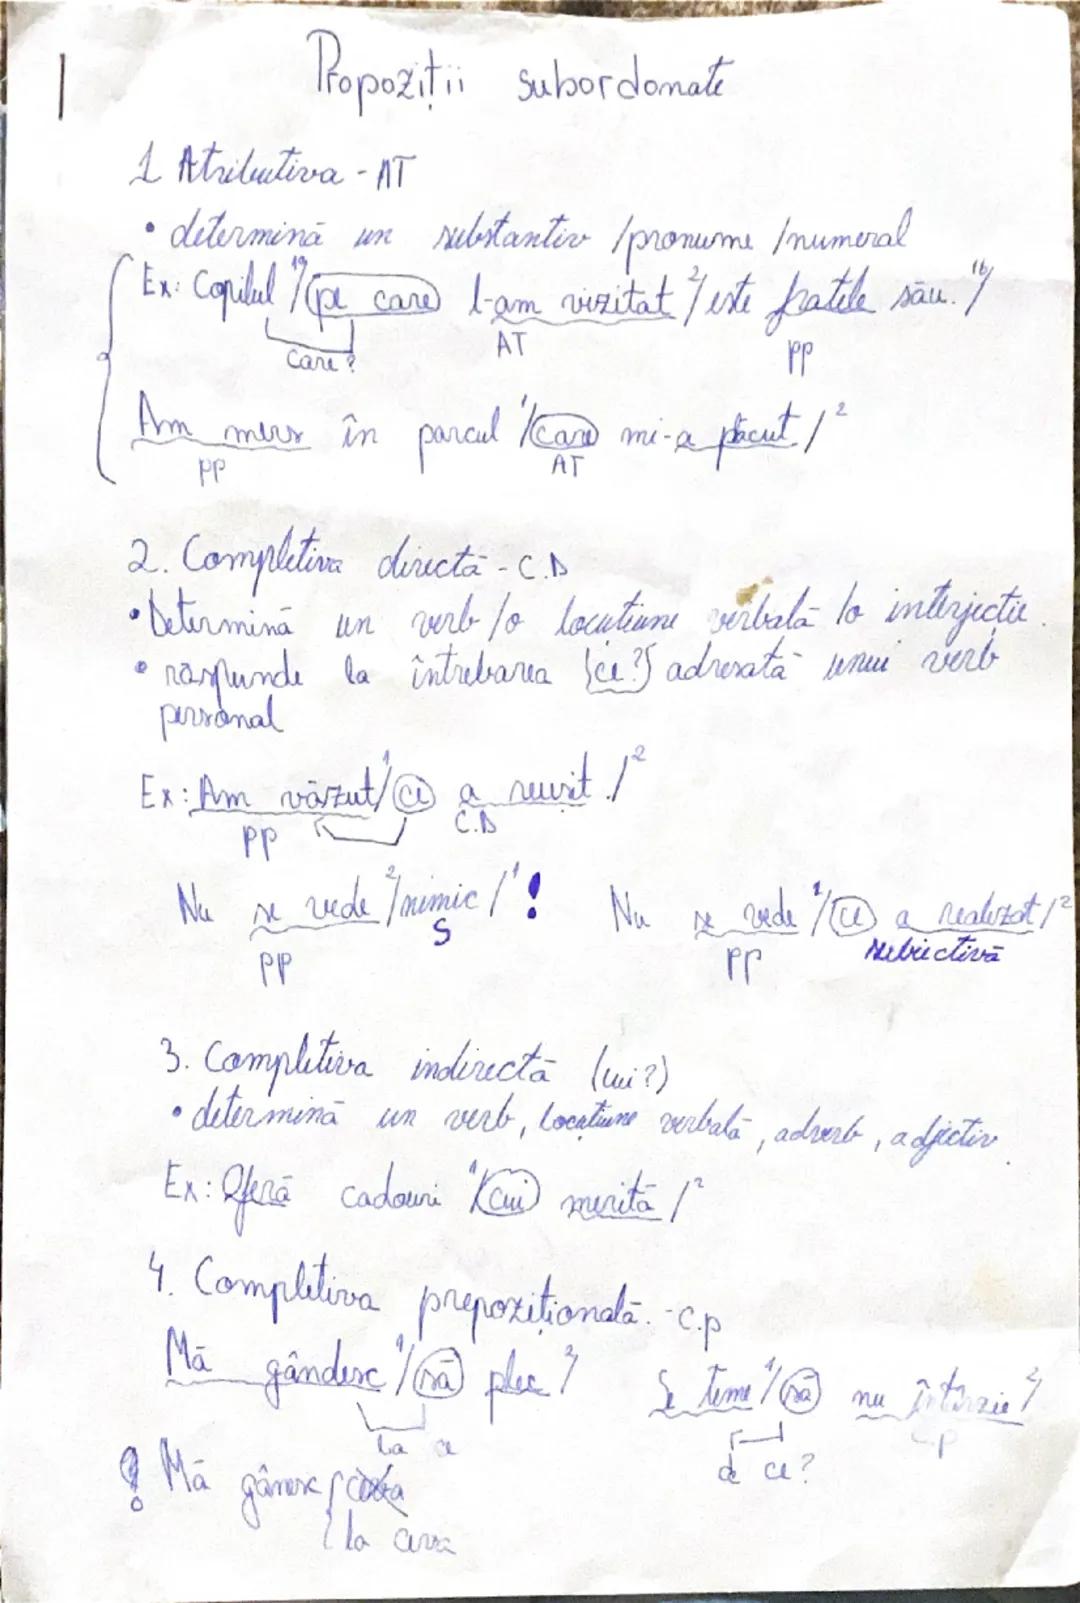 1
Propoziții subordonate
1 Atributiva - AT
• determină un substantiv /pronume /numeral
Ex: Copilul 1a/ (pe care) l-am vizitat 2/ este fratele său. 1b/
care? AT PP
Am mers în parcul 1/ (care) mi-a plăcut / 2
PP AT
2. Completiva directă - C.D
• Determină un verb /o locuțiune verbală /o interjecție.
• răspunde la întrebarea {ce?} adresată unui verb
personal
Ex: Am văzut 1/ (ce) a reușit. / 2
PP C.D
Nu se vede 2/ nimic / 1 ! Nu se vede 1/ (ce) a realizat / 2
PP S PP subiectivă
3. Completiva indirectă (cui?)
• determină un verb, locuțiune verbală, adverb, adjectiv.
Ex: Oferă cadouri 1/ (cui) merită / 2
4. Completiva prepozițională. - C.p
Mă gândesc 1/ (să) plec 2/ Se teme 1/ (să) nu întârzie 2/
la ce de ce? CP
! Mă gânesc { ceva
{ la ceva